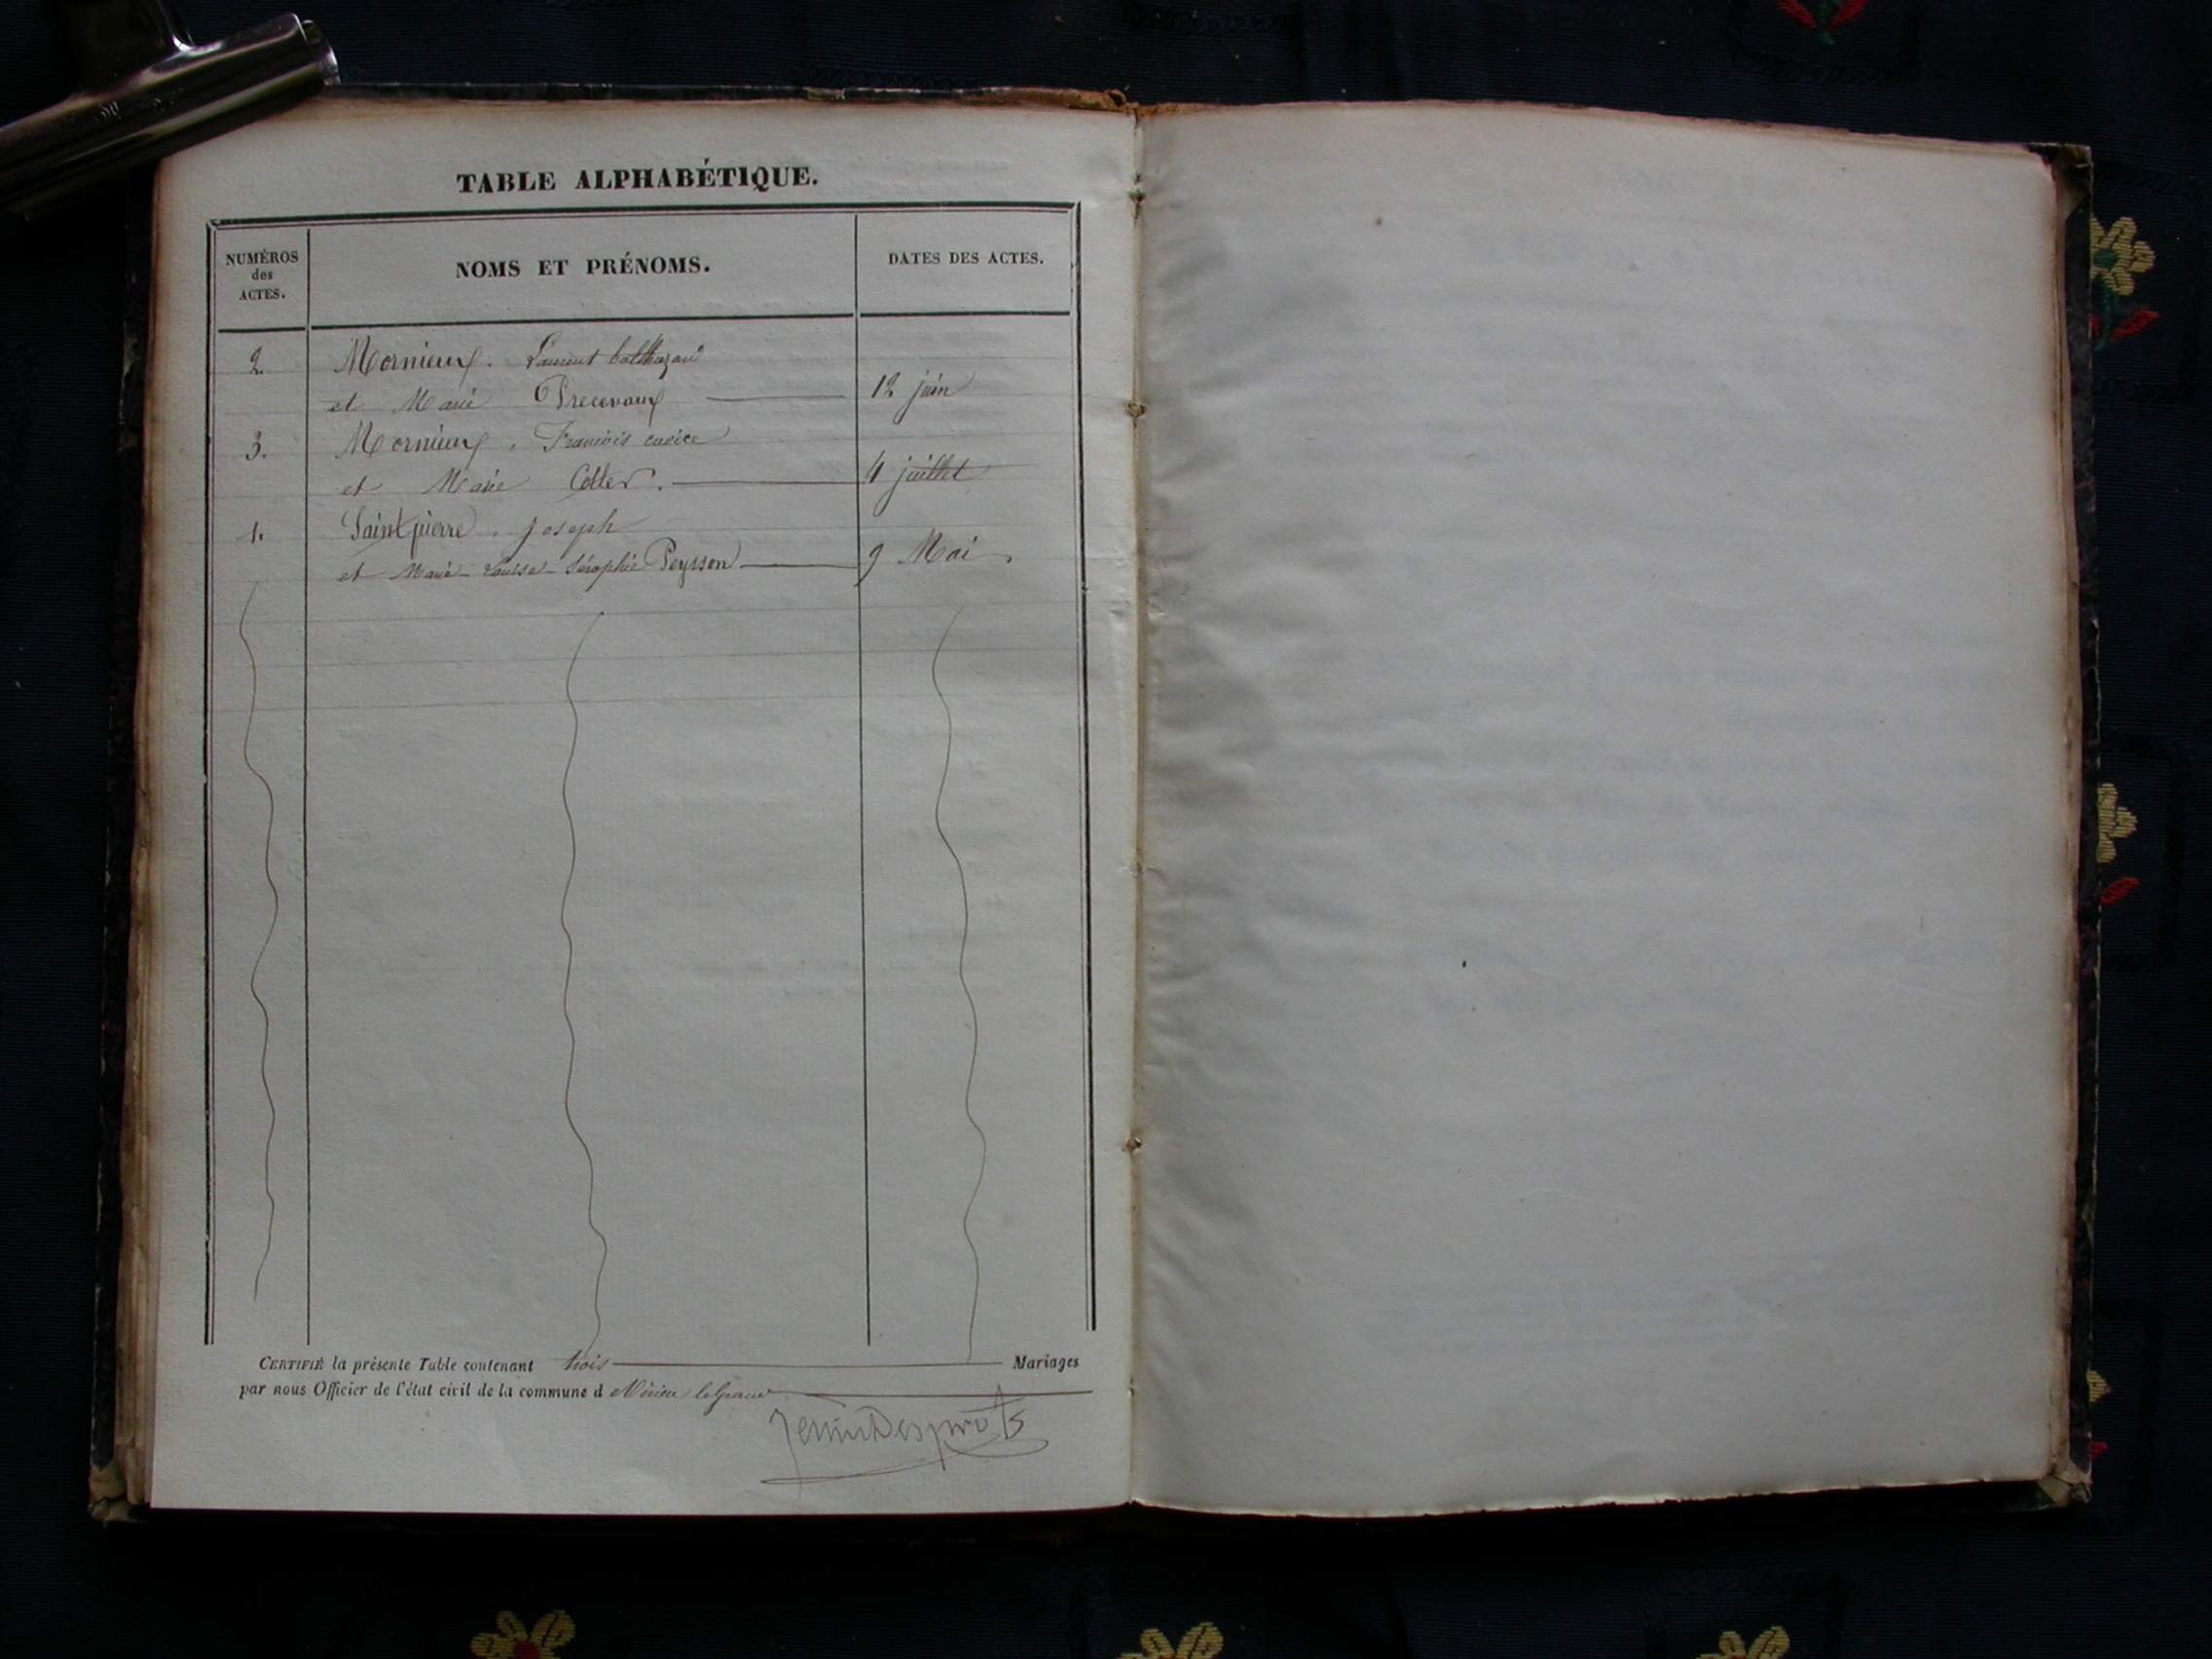 TABLE ALPHABÉTIQUE.
NUMÉROS
des
ACTES.
NOMS ET PRÉNOMS.
DATES DES ACTES.
2. Mornieux. Laurent balthazard
et Marie Precevaux 12 juin
3. Mornieux, François
et Marie Collet. 4 juillet
1. Saint pierre, Joseph
et Marie Louise Séraphie Peysson 9 Mai
CERTIFIÉ la présente Table contenant trois Mariages
par nous Officier de l'état civil de la commune d